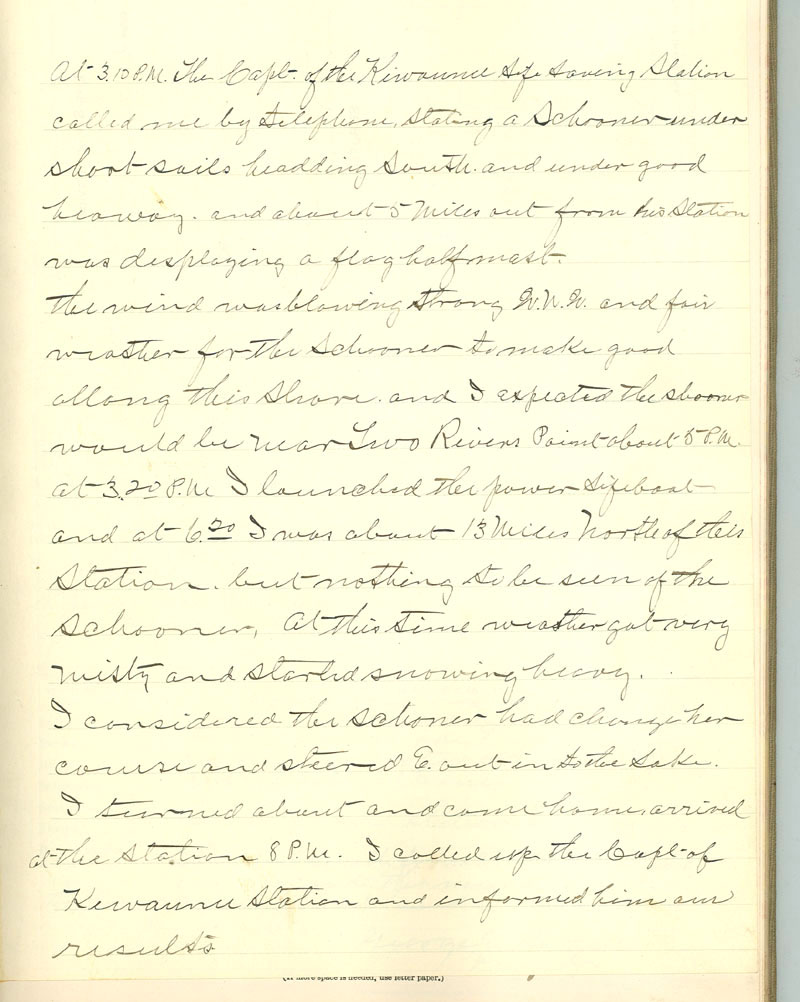 At 3.10 P.M. The Capt. of the Kewaunee Life Saving Station
called me by telephone, stating a Schooner under
short sails headding South. and under good
heaway. and about 5 Miles out from his Station
was displaying a flag half mast.
the wind was blowing strong W.N.W. and fair
weather for the Schooner to make good
allong this Shore. and I expected the shooner
would be near Two Rivers Point about 5 P.M.
at 3.20 P.M I launched the power Lifeboat
and at 6.20 I was about 13 Miles North of this
Station. but nothing to be seen of the
Schooner, At this time weather got very
misty and started snowing heavy.
I considered the Schoner had change her
course and steered E. out in to the Lake.
I turned about and come home, arrived
at the Station 8 P.M. I called up the Capt of
Kewaunee Station and informed him our
results
(If more space is needed, use letter paper.)